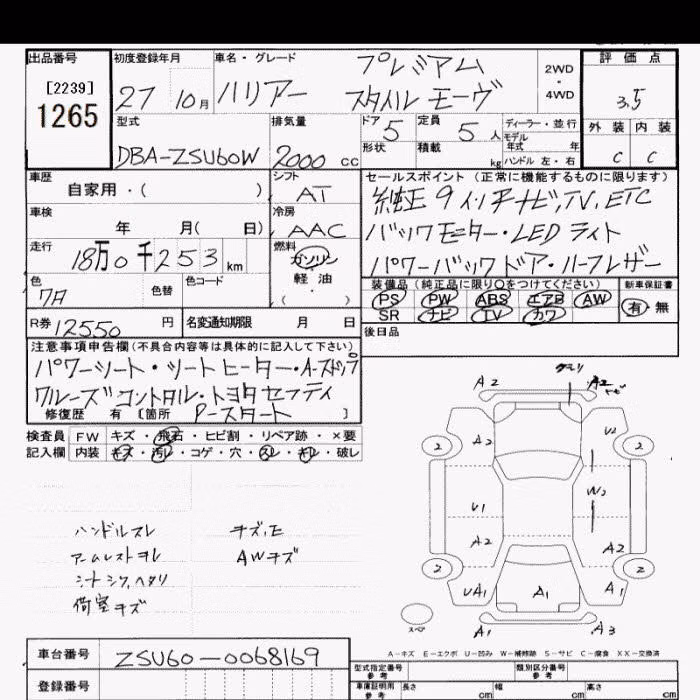 出品番号
[2239]
1265
初度登録年月
27 10月
車名・グレード
ハリアー
プレミアム
スタイル モーヴ
2WD
・
4WD
評価点
3.5
外装 内装
C C
型式
DBA-ZSU60W
排気量
2000 cc
ドア 5
形状
定員 5 人
積載 kg
ディーラー・並行
モデル
年式 年
ハンドル 左・右
車歴
自家用・( )
シフト
AT
車検
年 月( 日)
冷房
AAC
走行
18万0千253 km
燃料
ガソリン
軽油
・( )
色
7A
色替
色コード
R券 12550 円
名変通知期限 月 日
セールスポイント(正常に機能するものに限ります)
純正9インチナビ,TV,ETC
バックモニター・LEDライト
パワーバックドア・ハーフレザー
装備品(純正品に限り○をつけてください)
PS PW ABS エアB AW
SR ナビ TV カワ
新車保証書
有・無
後日品
注意事項申告欄(不具合内容等は具体的に記入して下さい)
パワーシート・シートヒーター・A-ストップ
クルーズコントロル・トヨタセフティ
P-スタート
修復歴 有 [箇所 ]
検査員
記入欄
FW キズ・飛石・ヒビ割・リペア跡・×要
内装 キズ・汚レ・コゲ・穴・スレ・キレ・破レ
ハンドルスレ
アームレストヨレ
シートシワ,ヘタリ
荷室キズ
チズ,E
AWキズ
A2
A2
A2
U2
2
2
W2
U1
A2
A2
2
2
UA1
A1
A1
A1
A3
スペア
A-キズ E-エクボ U-凹み W-補修跡 S-サビ C-腐食 XX-交換済
車台番号
ZSU60-0068169
登録番号
型式指定番号
参考
類別区分番号
参考
車庫証明用
参考
長さ cm
幅 cm
高さ cm